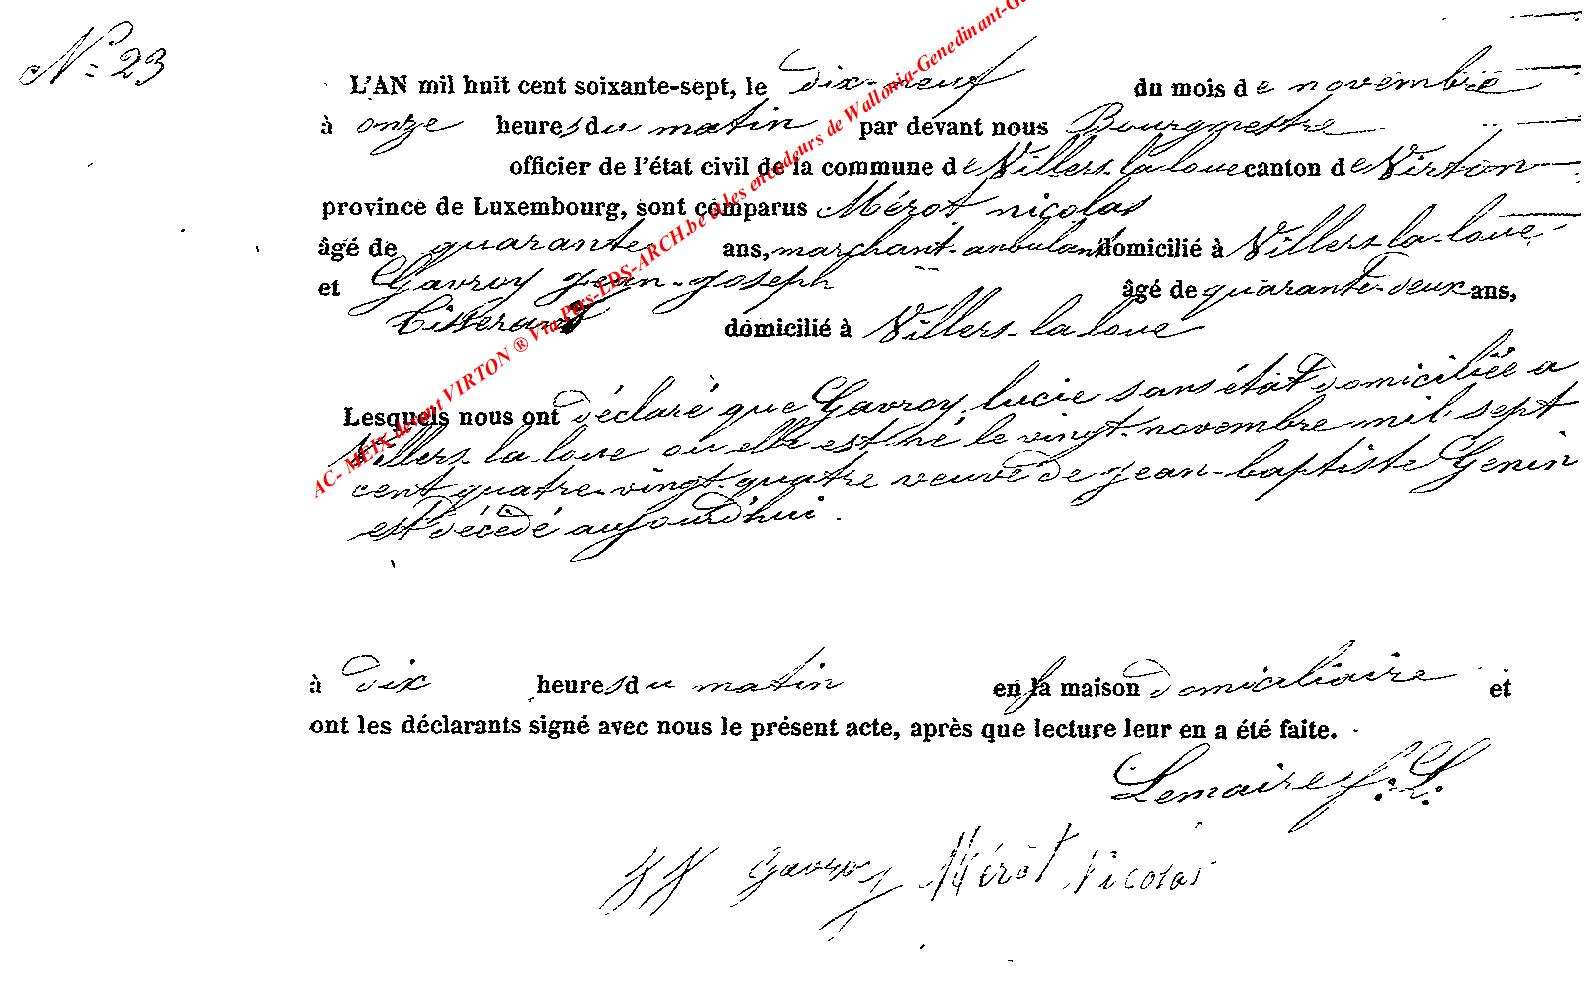 N° 23
L'AN mil huit cent soixante-sept, le dix-neuf du mois de novembre
à onze heures du matin par devant nous Bourgmestre
officier de l'état civil de la commune de Villers-la-loue canton de Virton
province de Luxembourg, sont comparus Mérot nicolas
âgé de quarante ans, marchant-anbulant domicilié à Villers-la-loue
et Gavroy jean-joseph âgé de quarante-deux ans,
tisserand domicilié à Villers-la loue
Lesquels nous ont déclaré que Gavroy lucie sans état domiciliée a
Villers-la-loue ou elle est né le vingt-novembre mil sept
cent quatre-vingt-quatre veuve de jean-baptiste Genin
est décédé aujourd'hui.
à dix heures du matin en sa maison domiciliaire et
ont les déclarants signé avec nous le présent acte, après que lecture leur en a été faite.
Lemaire f. L.
JJ Gavroy Mérot Nicolas
AC-MEIX devant VIRTON ® Via Pros-LDS-ARCH.be et les encodeurs de Wallonia-Genedinant-